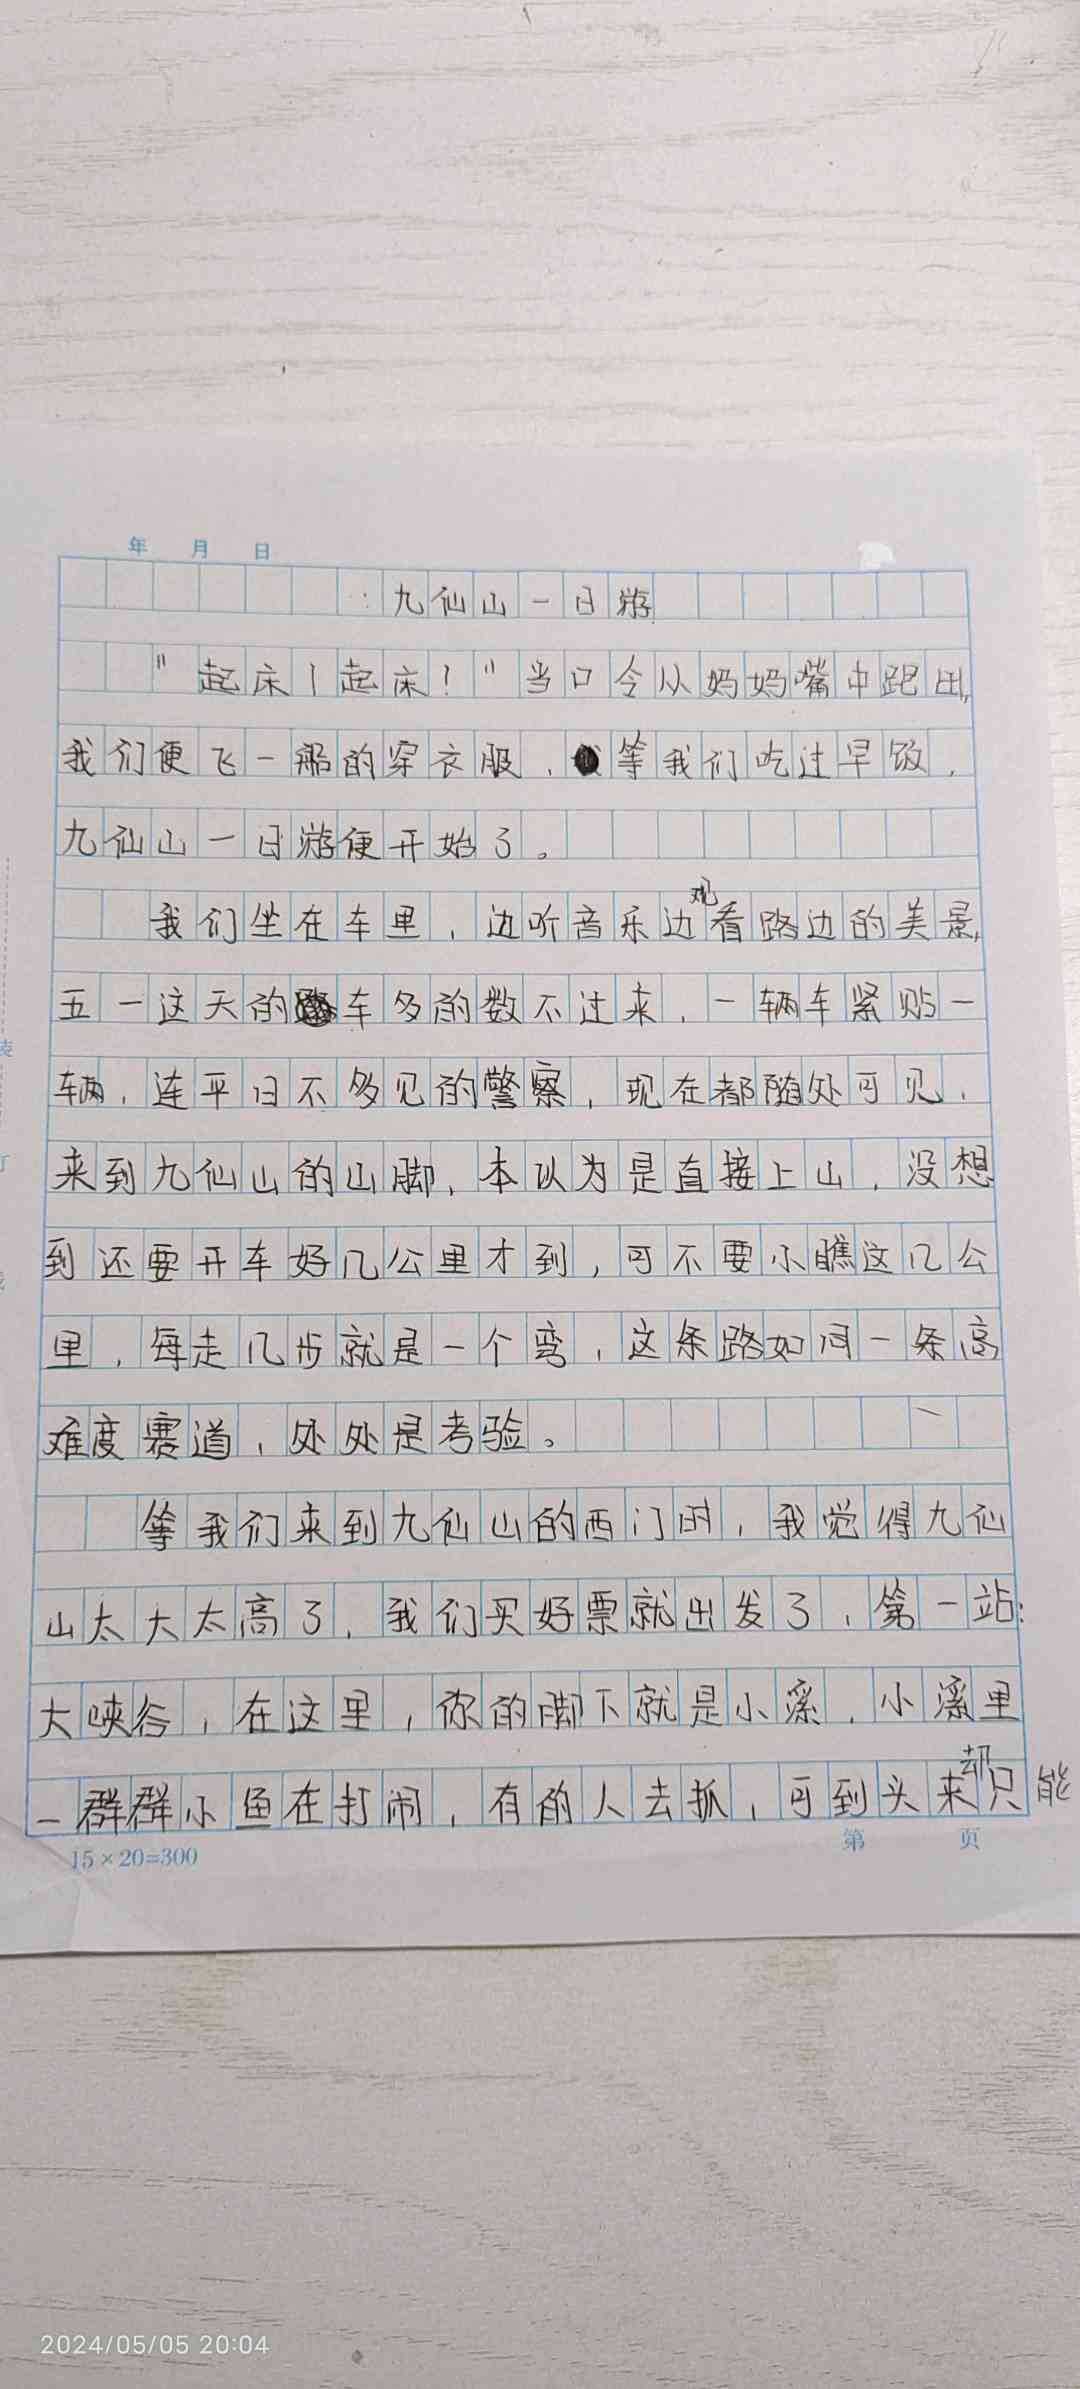 年 月 日
九仙山一日游
"起床！起床！"当口令从妈妈嘴中跑出,
我们便飞一般的穿衣服，等我们吃过早饭，
九仙山一日游便开始了。
我们坐在车里，边听音乐边观看路边的美景,
五一这天的车多的数不过来，一辆车紧贴一
辆，连平日不多见的警察，现在都随处可见，
来到九仙山的山脚，本以为是直接上山，没想
到还要开车好几公里才到，可不要小瞧这几公
里，每走几步就是一个弯，这条路如同一条高
难度赛道，处处是考验。
等我们来到九仙山的西门时，我觉得九仙
山太大太高了，我们买好票就出发了，第一站:
大峡谷，在这里，你的脚下就是小溪，小溪里
一群群小鱼在打闹，有的人去抓，可到头来却只能
15×20=300
第 页
装
订
2024/05/05 20:04